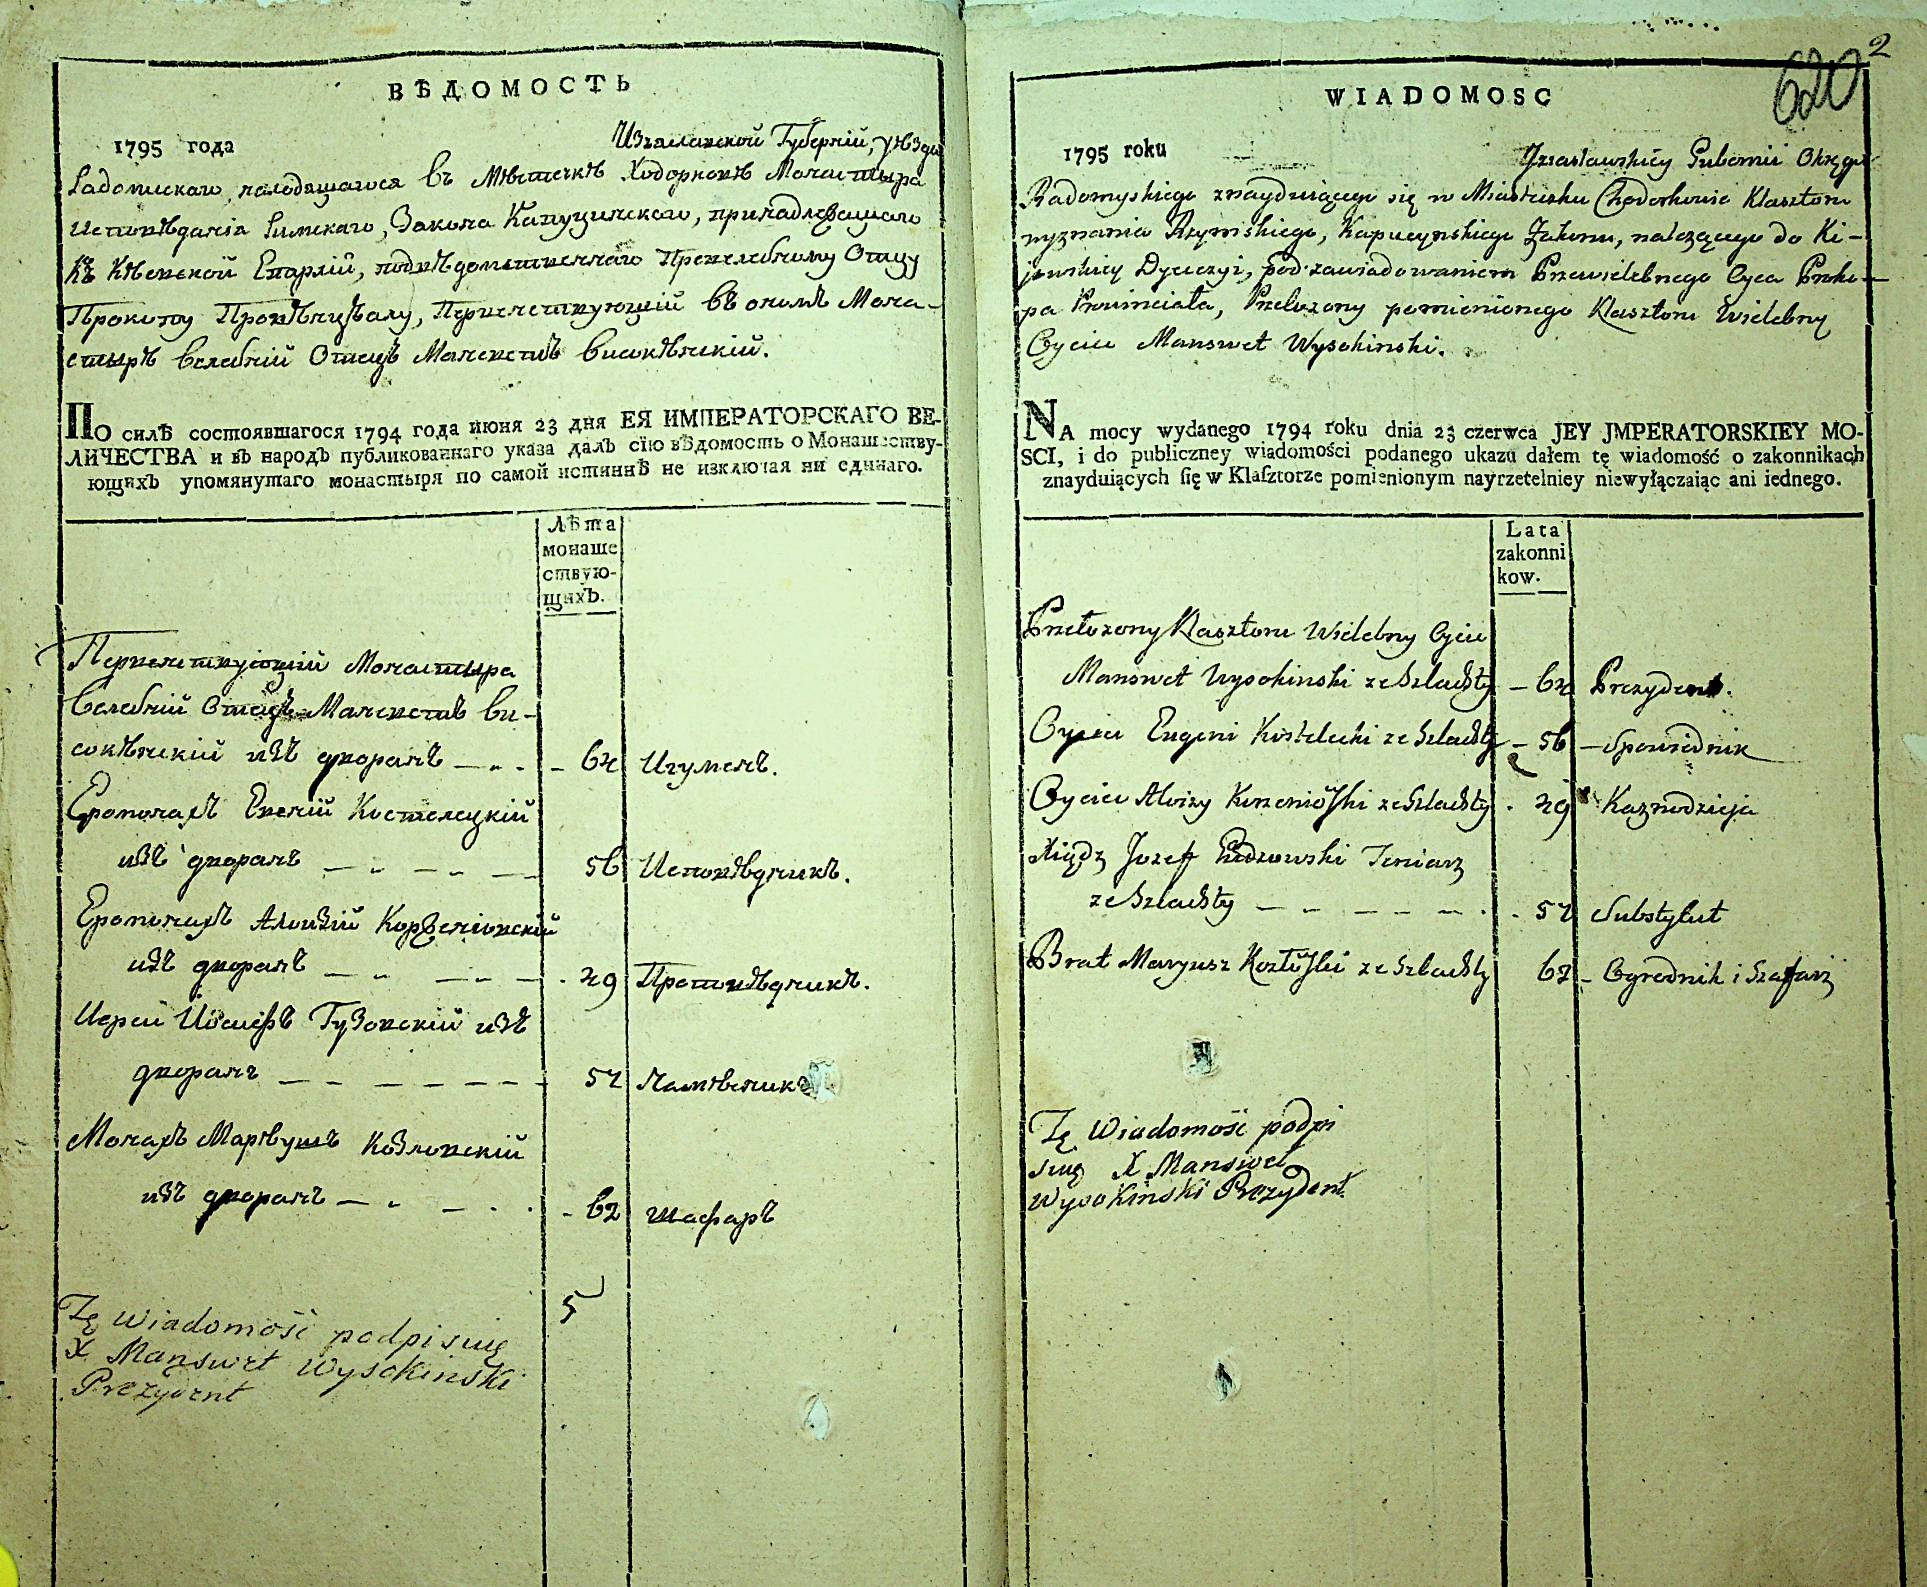 ВѢДОМОСТЬ
1795 года Изяславской Губерніи, уѣзда
Радомискаго, находящагося въ Мѣстечкѣ Ходорковѣ Монастыра
исповѣданія Римскаго, Закона Капуцинскаго, принадлежащаго
къ Кѣевской Епархіи, подвѣдомственнаго Превелебному Отцу
Прокопу Провѣнцѣалу, Первенствующій въ ономъ Мона-
стырѣ Велебній Отецъ Мансветъ Високѣнскій.
ПО СИЛѢ состоявшагося 1794 года июня 23 дня ЕЯ ИМПЕРАТОРСКАГО ВЕ-
ЛИЧЕСТВА и въ народъ публикованнаго указа далъ сїю вѣдомость о Монашеству-
ющихъ упомянутаго монастыря по самой истиннѣ не изключая ни единаго.
Лѣта
монаше
ствую-
щихъ.
Первенствующій Монастыра
Велебній Отецъ Мансветъ Ви-
сокѣнскій изъ дворанъ - 64 Игуменъ.
Еромонахъ Евгеній Костелецкій
изъ дворанъ - 56 Исповѣдникъ.
Еромонахъ Алоизій Корженіовскій
изъ дворанъ - 49 Проповѣдникъ.
Иерей Иосифъ Гузовскій изъ
дворанъ - 54 Намѣсникъ
Монахъ Марѣушъ Козловскій
изъ дворанъ - 62 шафаръ
5
Tę Wiadomość podpisuię
X Manswet Wysokinski
Prezydent
2
620
WIADOMOSC
1795 roku Jzasławskiey Gubernii Okręgu
Radomyskiego znayduiącego się w Miasteczku Chodorkowie Klasztoru
wyznania Rzymskiego, Kapucynskiego Zakonu, należącego do Ki-
jowskiey Dyecezyi, pod zawiadowaniem Przewielebnego Oyca Proko-
pa Prowinciała, Przełożony pomienionego Klasztoru Wielebny
Oyciec Manswet Wysokinski.
NA mocy wydanego 1794 roku dnia 23 czerwca JEY JMPERATORSKIEY MO-
SCI, i do publiczney wiadomości podanego ukazu dałem tę wiadomość o zakonnikach
znayduiących się w Klasztorze pomienionym nayrzetelniey niewyłączaiąc ani iednego.
Lata
zakonni
kow.
Przełożony Klasztoru Wielebny Oyciec
Manswet Wysokinski ze Szlachty - 64 Prezydent.
Oyciec Eugeni Kostelecki ze Szlachty - 56 - Spowiednik
Oyciec Aloizy Korzeniowski ze Szlachty - 49 Kaznodzieja
Xiądz Jozef
ze Szlachty - 54 Substytut
Brat Maryusz Kozłowski ze Szlachty 62 - Ogrodnik i Szafarz
Tę Wiadomość podpi
suię X Manswet
Wysokinski Prezydent